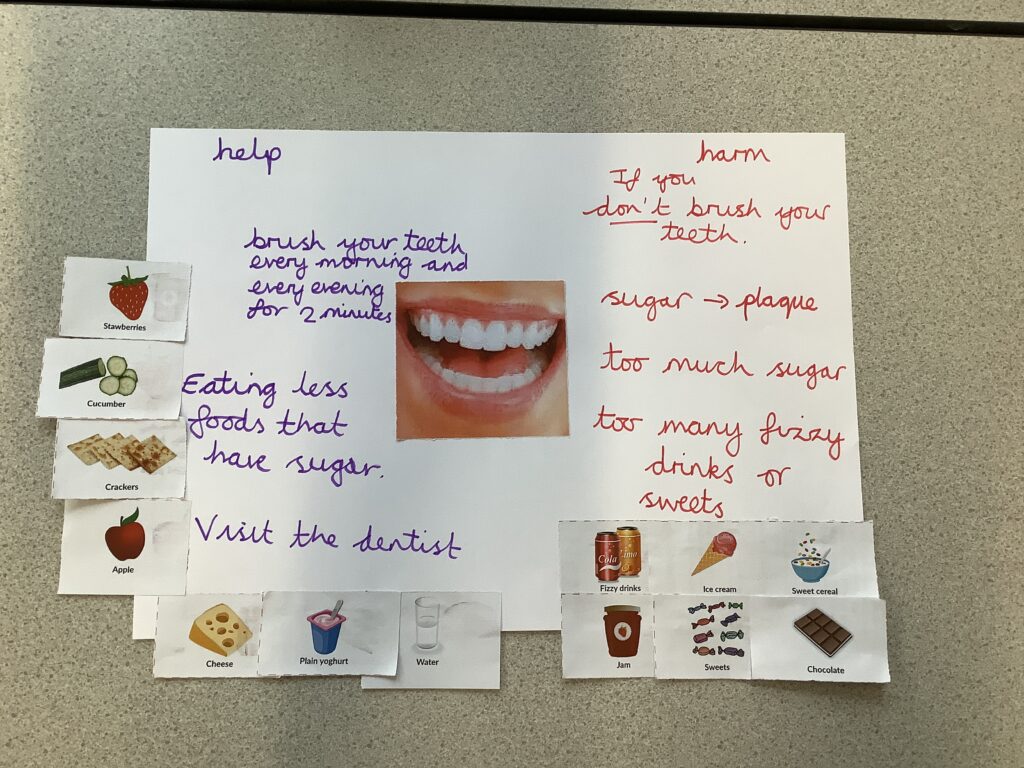 help
brush your teeth
every morning and
every evening
for 2 minutes
Eating less
foods that
have sugar.
Visit the dentist
harm
If you
don't brush your
teeth.
sugar → plaque
too much sugar
too many fizzy
drinks or
sweets
Stawberries
Cucumber
Crackers
Apple
Cheese
Plain yoghurt
Water
Cola
Limo
Fizzy drinks
Ice cream
Sweet cereal
Jam
Sweets
Chocolate